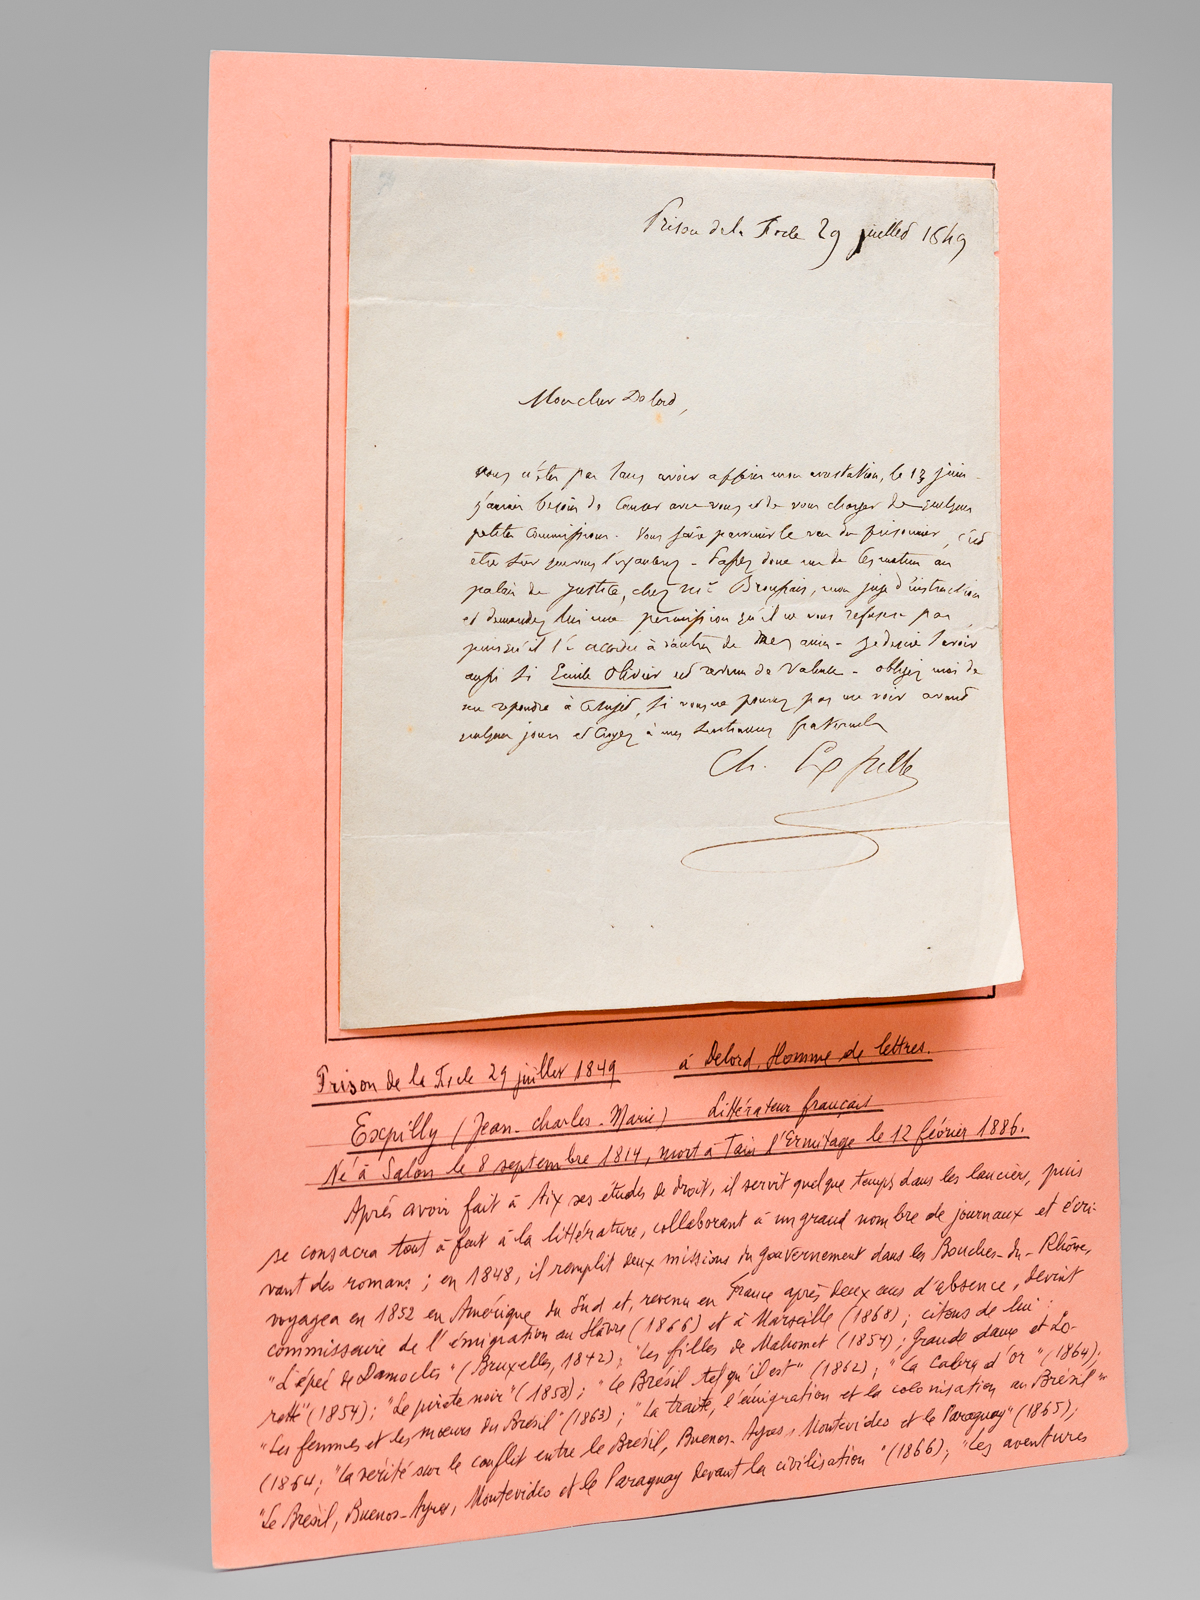 Prison de la Force 29 juillet 1849
Mon cher Delord,
vous n'êtes pas sans avoir appris mon arrestation, le 13 juin
j'aurais besoin de causer avec vous et de vous charger de quelques
petites commissions. Vous faire parvenir le vœu du prisonnier, c'est
être sûr que vous l'exaucerez. Passez donc un de ces matins au
palais de justice, chez Mr Broussais, mon juge d'instruction
et demandez lui une permission qu'il ne vous refusera pas
puisqu'il l'a accordée à d'autres de mes amis. Je désire savoir
aussi si Emile Olivier est revenu de Valence. obligez moi de
me repondre à ce sujet, si vous ne pouvez pas me voir avant
quelques jours et croyez à mes sentimens fraternels
Ch. Expilly
Prison de la Force 29 juillet 1849 à Delord, Homme de lettres.
Expilly (Jean-Charles-Marie) Littérateur français
Né à Salon le 8 septembre 1814, mort à Tain l'Ermitage le 12 février 1886.
Après avoir fait à Aix ses études de droit, il servit quelque temps dans les lanciers, puis
se consacra tout à fait à la littérature, collaborant à un grand nombre de journaux et écri-
vant des romans ; en 1848, il remplit deux missions du gouvernement dans les Bouches-du-Rhône,
voyagea en 1852 en Amérique du Sud et, revenu en France après deux ans d'absence, devint
commissaire de l'émigration au Hâvre (1866) et à Marseille (1868) ; citons de lui :
"L'épée de Damoclès" (Bruxelles, 1842) ; "Les filles de Mahomet (1854) ; Grande dame et Lo-
rette" (1854) ; "Le pirate noir" (1858) ; "Le Brésil tel qu'il est" (1862) ; "La Cabra d'or" (1864) ;
"Les femmes et les mœurs du Brésil" (1863) ; "La traite, l'émigration et la colonisation au Brésil"
(1864 ; "La vérité sur le conflit entre le Brésil, Buenos-Ayres, Montevideo et le Paraguay" (1865) ;
"Le Brésil, Buenos-Ayres, Montevideo et le Paraguay devant la civilisation" (1866) ; "Les aventures